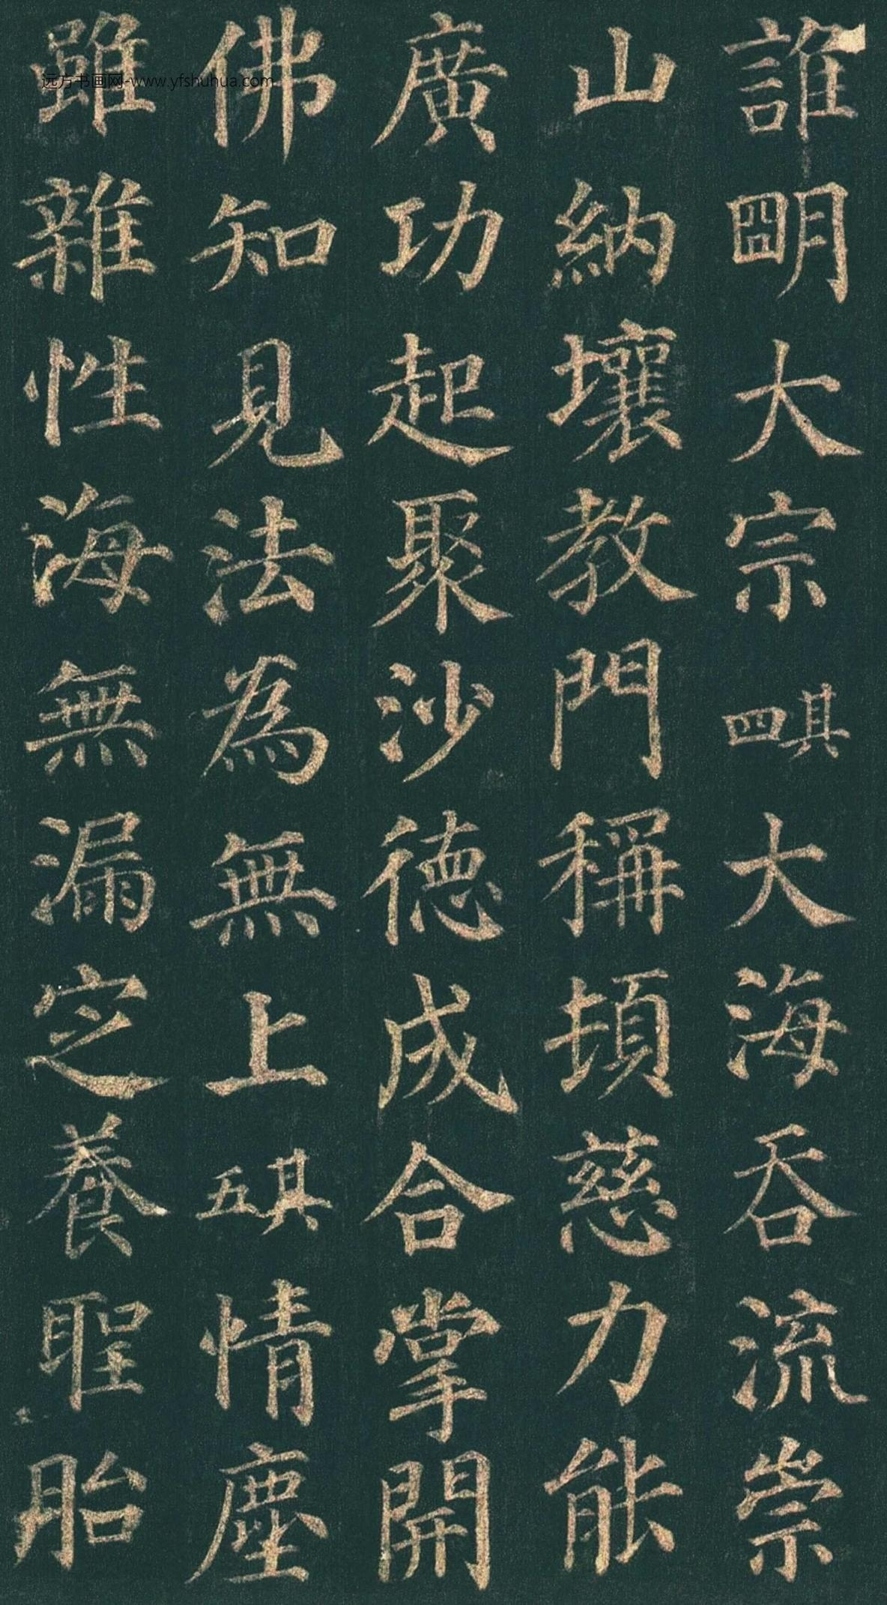 誰明大宗其四大海吞流崇
山納壤教門稱頓慈力能
廣功起聚沙德成合掌開
佛知見法為無上其五情塵
雖雜性海無漏定養聖胎
远方书画网-www.yfshuhua.com